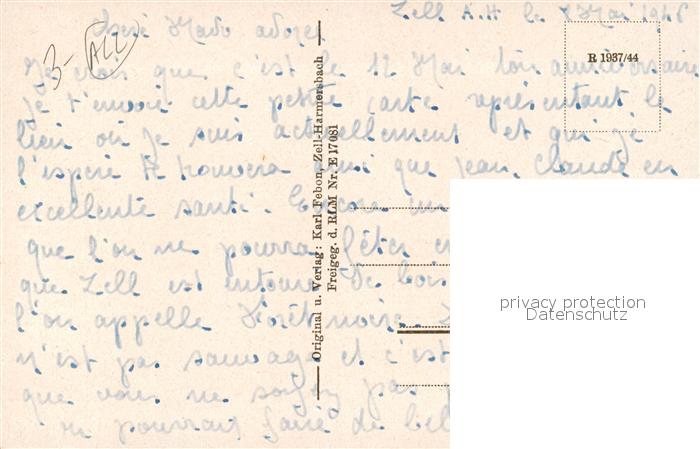 Zell A.H le 8 Mai 1946
Chère Mado adorée
3- ALL
R 1937/44
Je vois que c'est le 12 Mai ton anniversaire
Je t'envoie cette petite carte représentant le
lieu où je suis actuellement et qui je
l'espère te trouvera ainsi que Jean, Claude en
excellente santé. Encore un
que l'on ne pourra fêter
que Zell est entouré de bois
l'on appelle Forêt noire.
n'est pas sauvage et c'est
que vous ne soyez pas
pourrait faire de bel
Original u. Verlag: Karl Febon, Zell-Harmersbach
Freigeg. d. RLM Nr. E 17081
privacy protection
Datenschutz